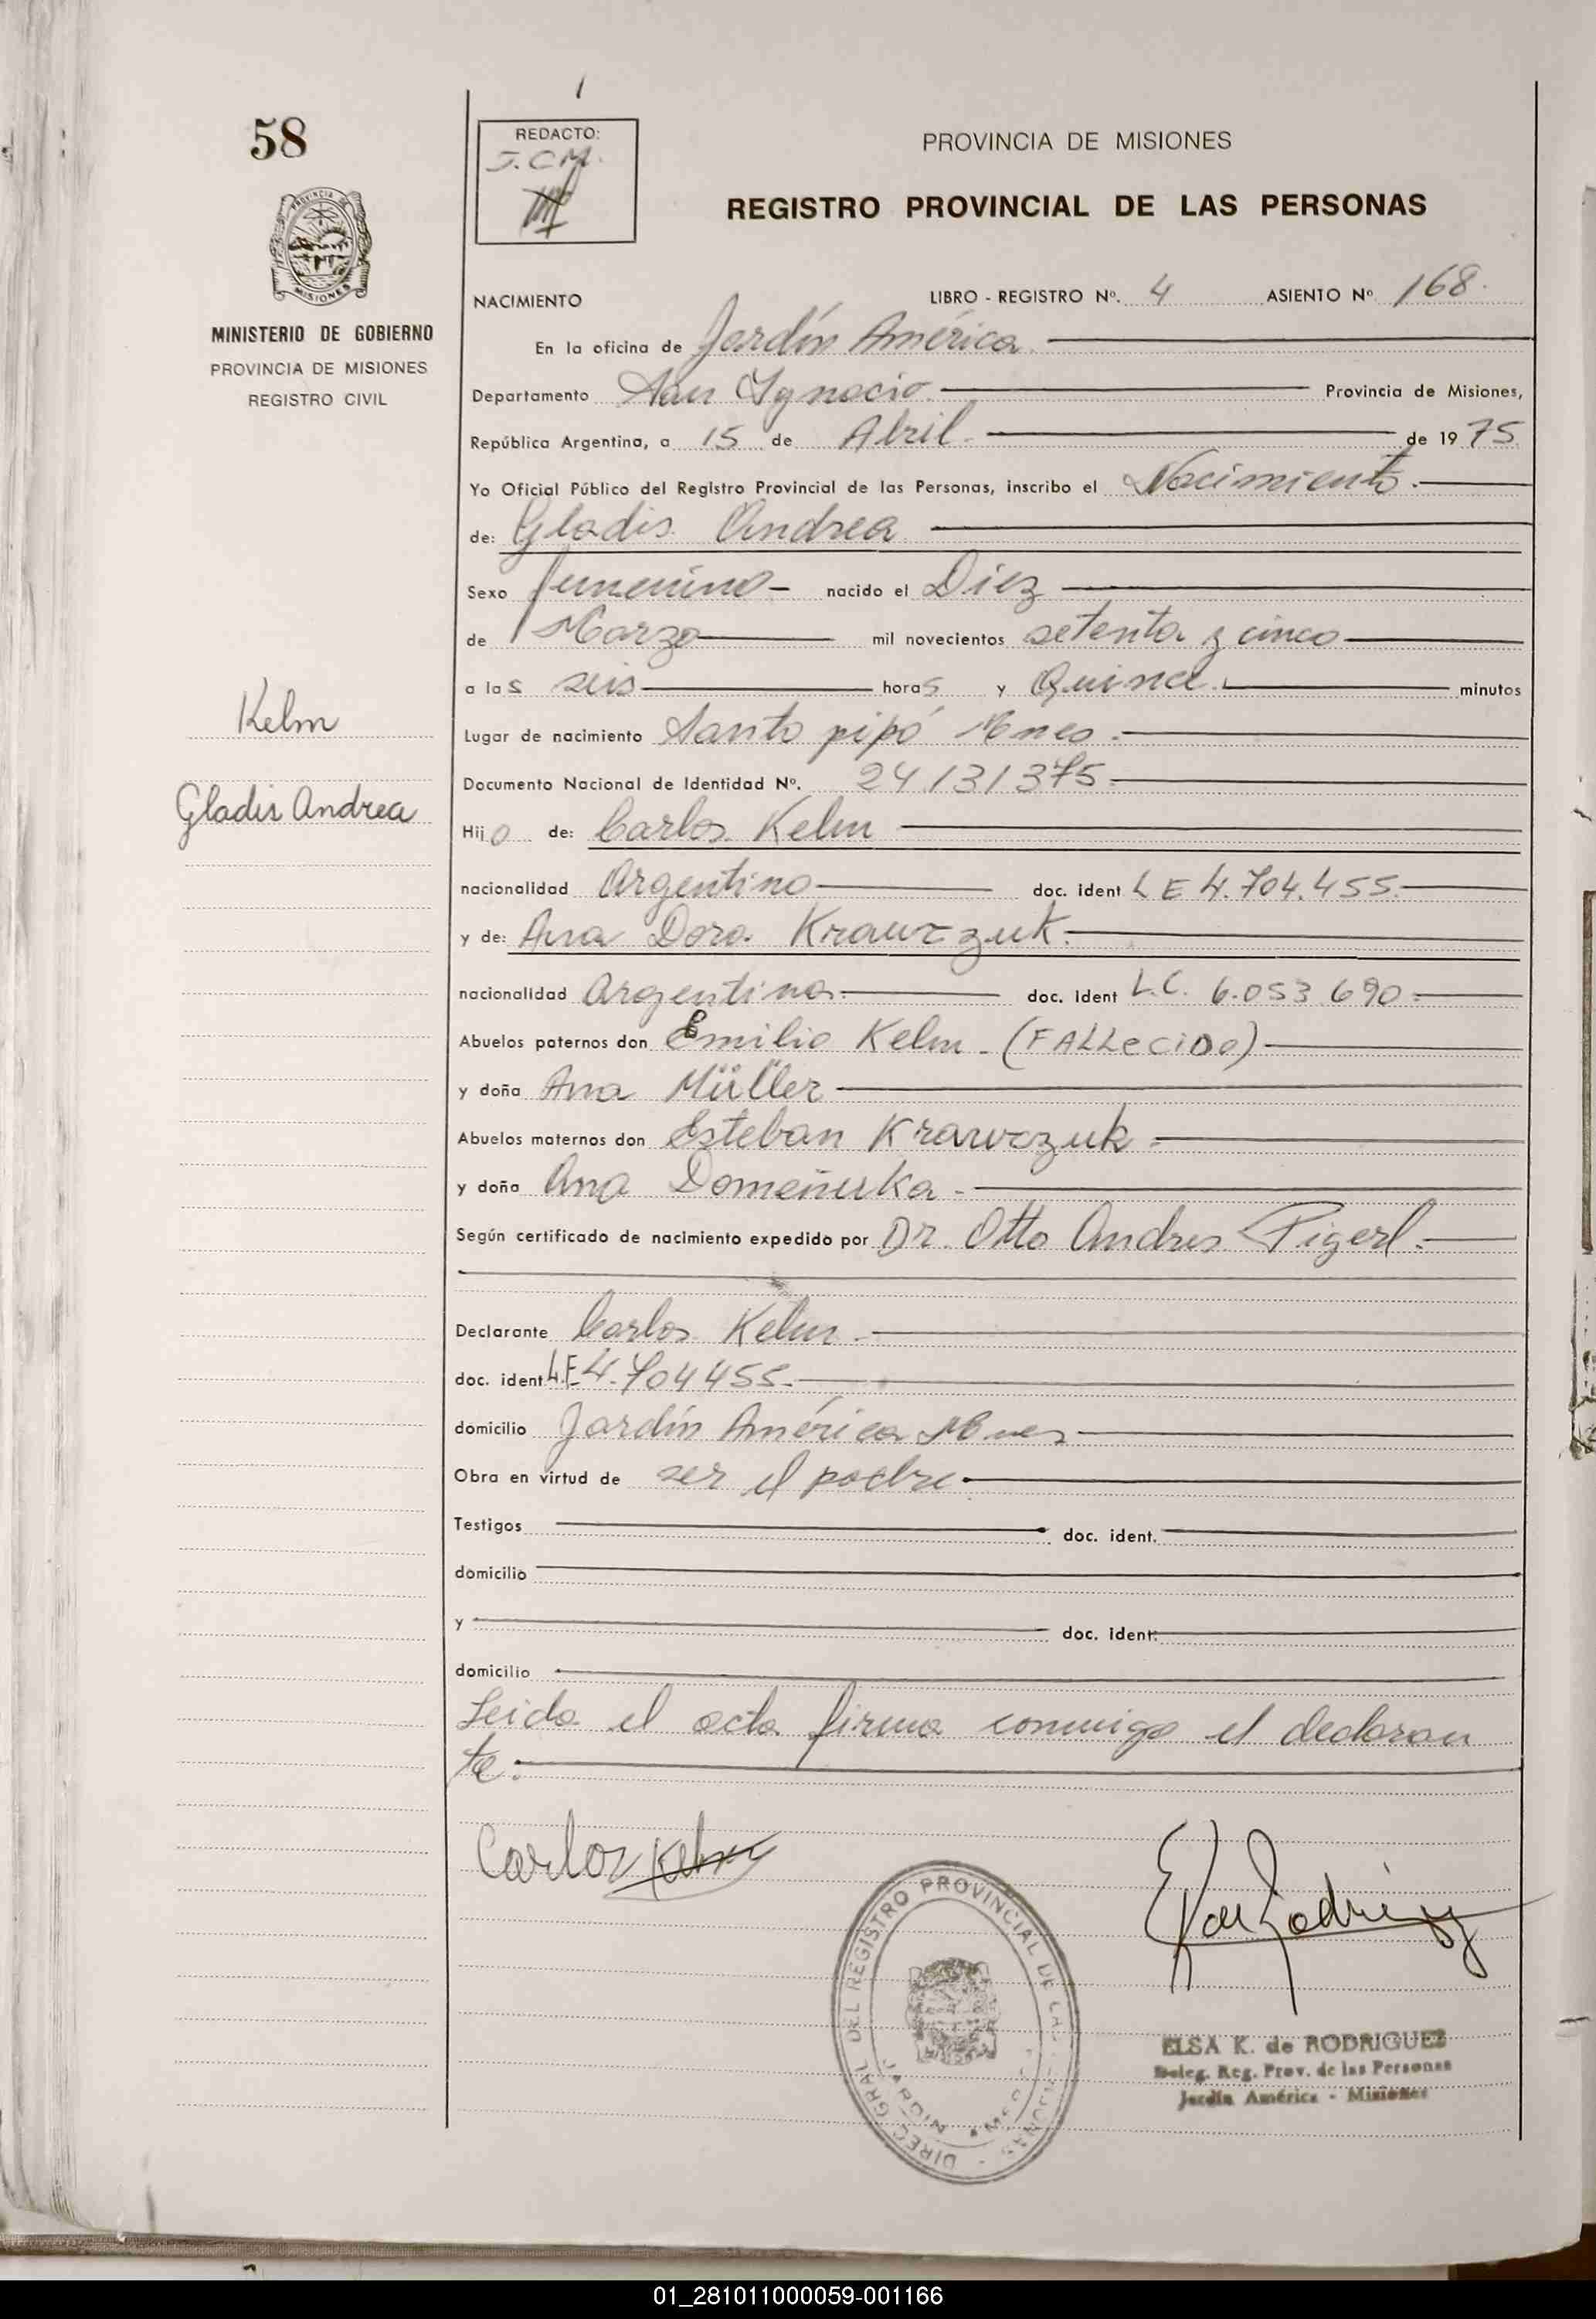 58
REDACTO:
J.C.M.
PROVINCIA DE MISIONES
REGISTRO PROVINCIAL DE LAS PERSONAS
PROVINCIA DE
MISIONES
MINISTERIO DE GOBIERNO
PROVINCIA DE MISIONES
REGISTRO CIVIL
NACIMIENTO LIBRO - REGISTRO Nº. 4 ASIENTO Nº 168.
En la oficina de Jardín América.
Departamento San Ygnacio. Provincia de Misiones,
República Argentina, a 15 de Abril. de 1975.
Yo Oficial Público del Registro Provincial de las Personas, inscribo el Nacimiento.
de: Gladis Andrea
Sexo femenino nacido el Diez
de Marzo mil novecientos setenta y cinco
a las seis horas y Quince. minutos
Kelm
Gladis Andrea
Lugar de nacimiento Santo pipó Mnes.
Documento Nacional de Identidad Nº. 24.131375.
Hijo de: Carlos Kelm
nacionalidad Argentino doc. ident LE 4.704.455.
y de: Ana Dora Krawczuk.
nacionalidad Argentina. doc. ident L.C. 6.053690.
Abuelos paternos don Emilio Kelm. (FALLECIDO)
y doña Ana Müller
Abuelos maternos don Esteban Krawczuk.
y doña Ana
Según certificado de nacimiento expedido por Dr. Otto Andres Pigerl.
Declarante Carlos Kelm.
doc. ident L.E 4.704455.
domicilio Jardín América Mnes
Obra en virtud de ser el padre.
Testigos doc. ident.
domicilio
y doc. ident.
domicilio
Leida el acta firma conmigo el declaran
te.
Carlos Kelm
DIREC. GRAL DEL REGISTRO PROVINCIAL DE LAS PERSONAS
JARDIN
ELSA K. de RODRIGUEZ
Deleg. Reg. Prov. de las Personas
Jardín América - Misiones
01_281011000059-001166